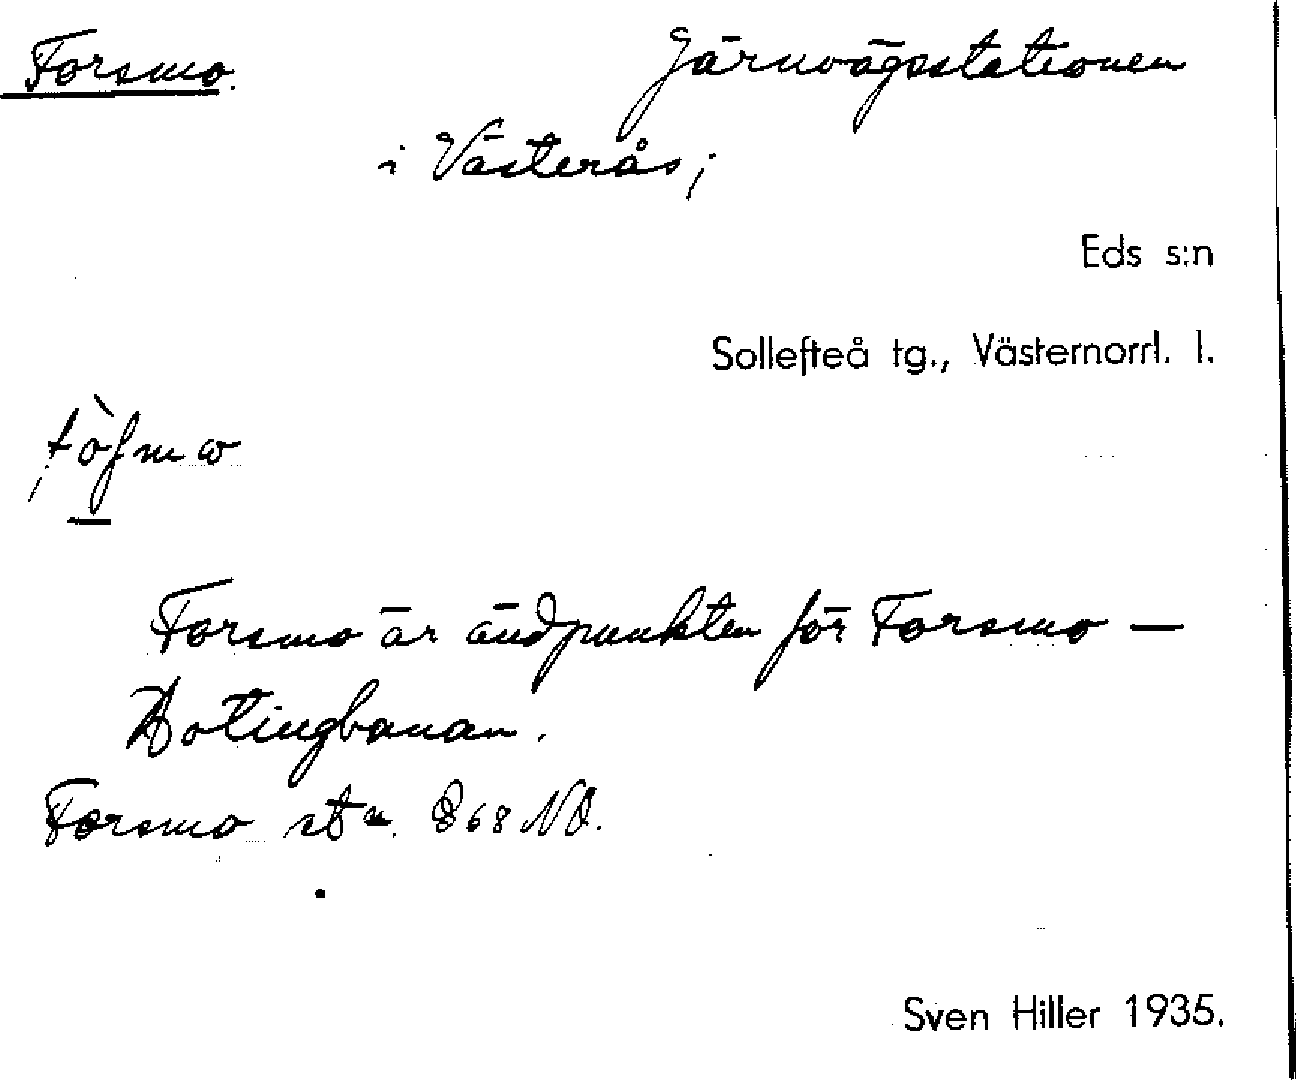 Forsmo. Järnvägsstationen
i Västerås;
Eds s:n
Sollefteå tg., Västernorrl. l.
Forsmo är ändpunkten för Forsmo —
Hotingbanan.
Forsmo st n. 868 NO.
Sven Hiller 1935.